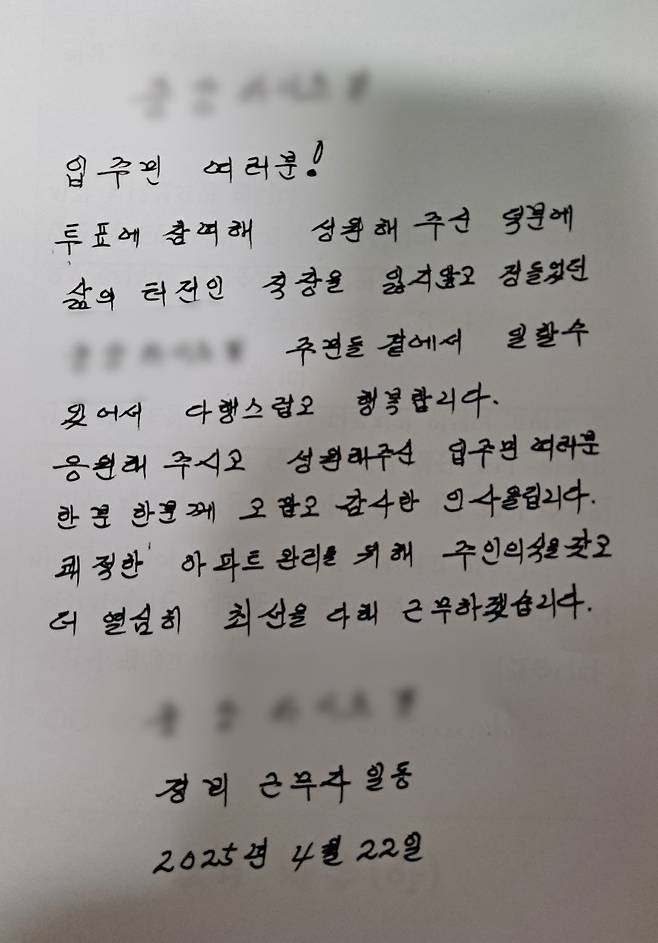 입주민 여러분!
투표에 참여해 성원해 주신 덕분에
삶의 터전인 직장을 잃지않고 정들었던
주민들 곁에서 일할수
있어서 다행스럽고 행복합니다.
응원해 주시고 성원해주신 입주민 여러분
한분 한분께 고맙고 감사한 인사올립니다.
쾌적한 아파트관리를 위해 주인의식을갖고
더 열심히 최선을 다해 근무하겠습니다.
경비 근무자 일동
2025년 4월 22일